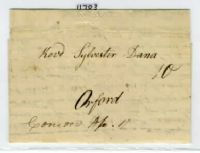 11703
Revd Sylvester Dana
10
Orford
Concord